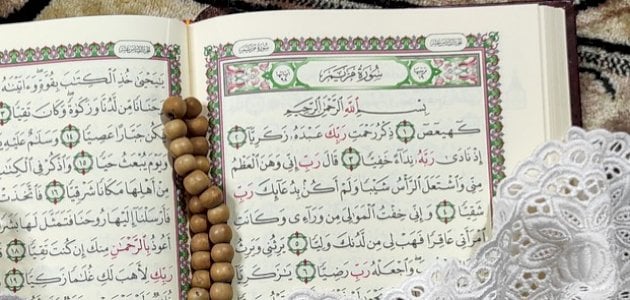 سُورَةُ مَرْيَمَ
سُورَةُ مَرْيَمَ
بِسْمِ ٱللَّهِ ٱلرَّحْمَٰنِ ٱلرَّحِيمِ
كٓهيعٓصٓ ١ ذِكْرُ رَحْمَتِ رَبِّكَ عَبْدَهُۥ زَكَرِيَّآ ٢
إِذْ نَادَىٰ رَبَّهُۥ نِدَآءً خَفِيًّا ٣ قَالَ رَبِّ إِنِّى وَهَنَ ٱلْعَظْمُ
مِنِّى وَٱشْتَعَلَ ٱلرَّأْسُ شَيْبًا وَلَمْ أَكُنۢ بِدُعَآئِكَ رَبِّ
شَقِيًّا ٤ وَإِنِّى خِفْتُ ٱلْمَوَٰلِىَ مِن وَرَآءِى وَكَانَتِ
ٱمْرَأَتِى عَاقِرًا فَهَبْ لِى مِن لَّدُنكَ وَلِيًّا ٥ يَرِثُنِى وَيَرِثُ
وَٱجْعَلْهُ رَبِّ رَضِيًّا ٦ يَٰزَكَرِيَّآ
يَٰيَحْيَىٰ خُذِ ٱلْكِتَٰبَ بِقُوَّةٍ وَءَاتَيْنَٰهُ
وَحَنَانًا مِّن لَّدُنَّا وَزَكَوٰةً وَكَانَ تَقِيًّا
يَكُن جَبَّارًا عَصِيًّا ١٤ وَسَلَٰمٌ عَلَيْهِ
وَيَوْمَ يُبْعَثُ حَيًّا ١٥ وَٱذْكُرْ فِى ٱلْكِتَٰبِ
مِنْ أَهْلِهَا مَكَانًا شَرْقِيًّا ١٦ فَٱتَّخَذَتْ
فَأَرْسَلْنَآ إِلَيْهَا رُوحَنَا فَتَمَثَّلَ لَهَا
أَعُوذُ بِٱلرَّحْمَٰنِ مِنكَ إِن كُنتَ تَقِيًّا
رَبِّكِ لِأَهَبَ لَكِ غُلَٰمًا زَكِيًّا